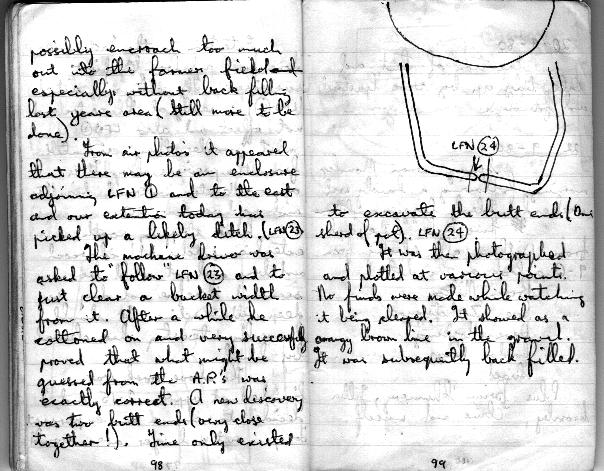 possibly encroach too much
out into the farmer field and
especially without back filling
last years area (still more to be
done).
From air photo's it appeared
that there may be an enclosure
adjoining LFN 1 and to the east
and our extention today has
picked up a likely ditch. (LFN 23)
The machine driver was
asked to "follow" LFN 23 and to
just clear a bucket width
from it. After a while he
cottoned on and very successfully
proved that what might be
guessed from the A.P's was
exactly correct. A new discovery
was two butt ends (very close
together!). Time only existed
98
LFN 24
to excavate the butt ends (One
sherd of pot). LFN 24
It was then photographed
and plotted at various points.
No finds were made while watching
it being cleared. It showed as a
orangy brown line in the gravel.
It was subsequently back filled.
99